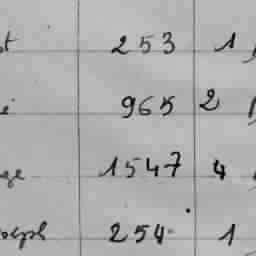 253 1
965 2
1547 4
254 1